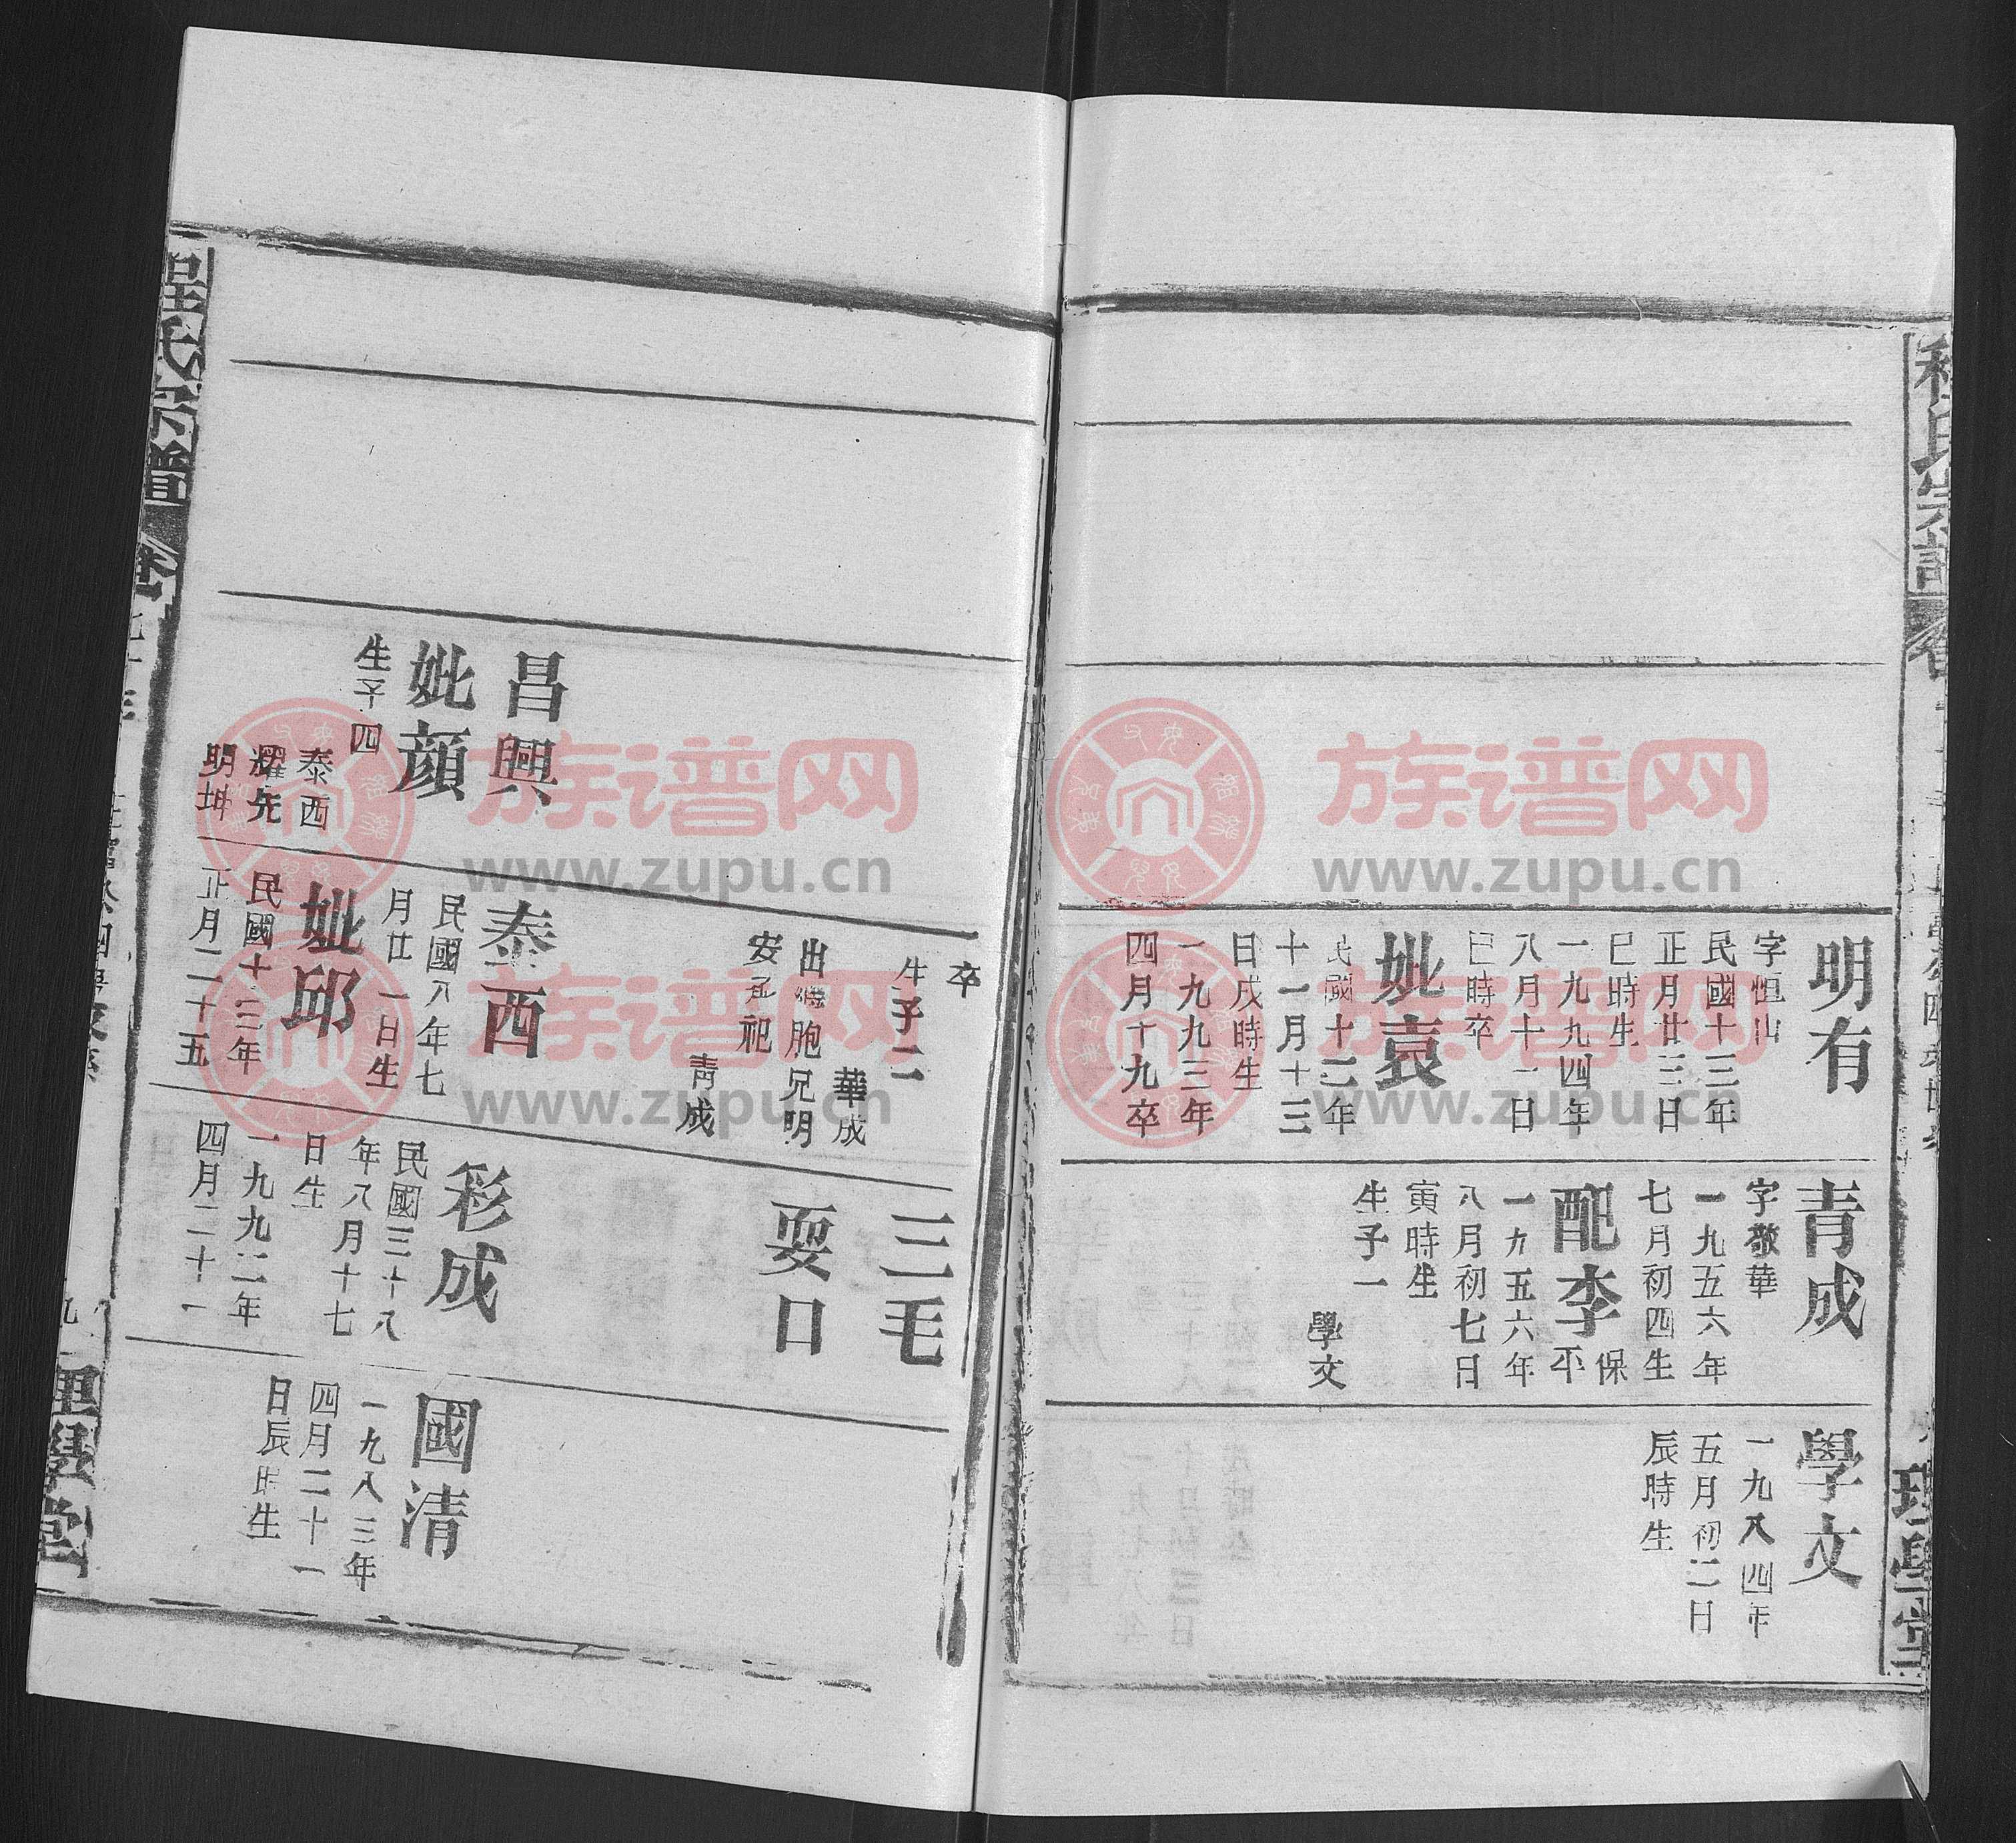 程氏宗譜
明有
字恒山
民國十三年
正月廿三日
巳時生
一九九四年
八月十一日
巳時卒
妣袁
民國十二年
十一月十三
日戌時生
一九九三年
四月十九卒
青成
字敬華
一九五六年
七月初四生
配李保平
一九五六年
八月初七日
寅時生
生子一
學文
學文
一九八四年
五月初二日
辰時生
理學堂
卒
生子二
華成
出繼胞兄明
安承祀
青成
三毛
耍口
昌興
妣顔
生子四
泰西
耀先
明坤
泰西
民國八年七
月廿一日生
妣邱
民國十三年
正月二十五
彩成
民國三十八
年八月十七
日生
一九九二年
四月二十一
國清
一九八三年
四月二十一
日辰時生
程氏宗譜
理學堂
族谱网
www.zupu.cn
族谱网
www.zupu.cn
族谱网
www.zupu.cn
族谱网
www.zupu.cn